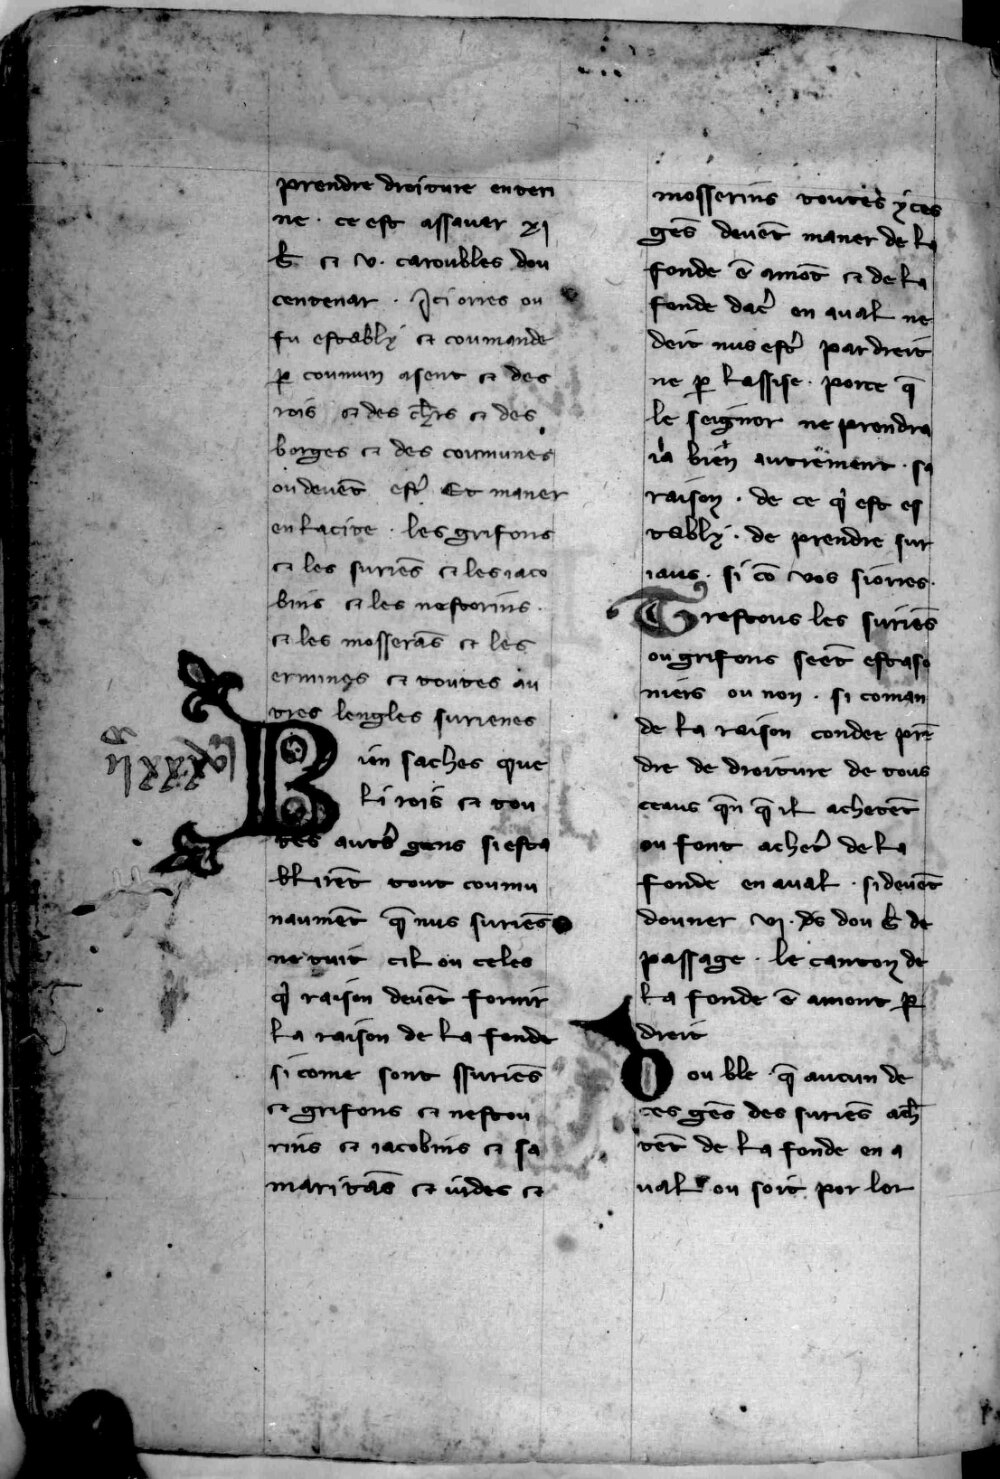 prendre droiture enteri
ne · ce est assauer xj
b̄ et v· caroubles dou
centenar · Ici orres ou
fu establi et coumande
ꝑ coumun asent et des
rois et des ch̄rs et des
borges et des coumunes
ou deuēt estr̄ et maner
en la cite · les grifons
et les suriēs et les iaco
bins et les nestorins ·
et les mosserās et les
ermines et toutes au
tres lengles surienes
Bien saches que
li rois et tou
tes autr̄s gens si esta
blirēt tout coumu
naumēt q̄ nus suriēs
ne tuit cil ou celes
qͥ raison deuēt fornir
la raison de la fonde
si come sont ssuriēs
et grifons et nestou
rins et iacobins et sa
maritās et iudes et
mosserins toutes yces
gēs deuēt maner de la
fonde ē amōt et de la
fonde dar̄ en aual ne
deit nus estr̄ par dreit
ne ꝑ lassise · porce q̄
le seignor ne prendra
ia bien autrement · sa
raison · de ce qͥ est es
tably · de prendre sur
iaus · si cō vos siorres ·
Trestous les suriēs
ou grifons seēt estaso
niers ou non · si coman
de la raison condee prē
dre de droiture de tous
ceaus qn̄ q̄ il achetēt
ou font acheт̄ de la
fonde en aual · si deuēt
donner vj · ds̄ dou b̄ de
passage · le canton de
la fonde ē amont ꝑ
dreit
Touble q̄ aucun de
ces gēs des suriēs ach̄
tēt de la fonde en a
ual ou soit por lor